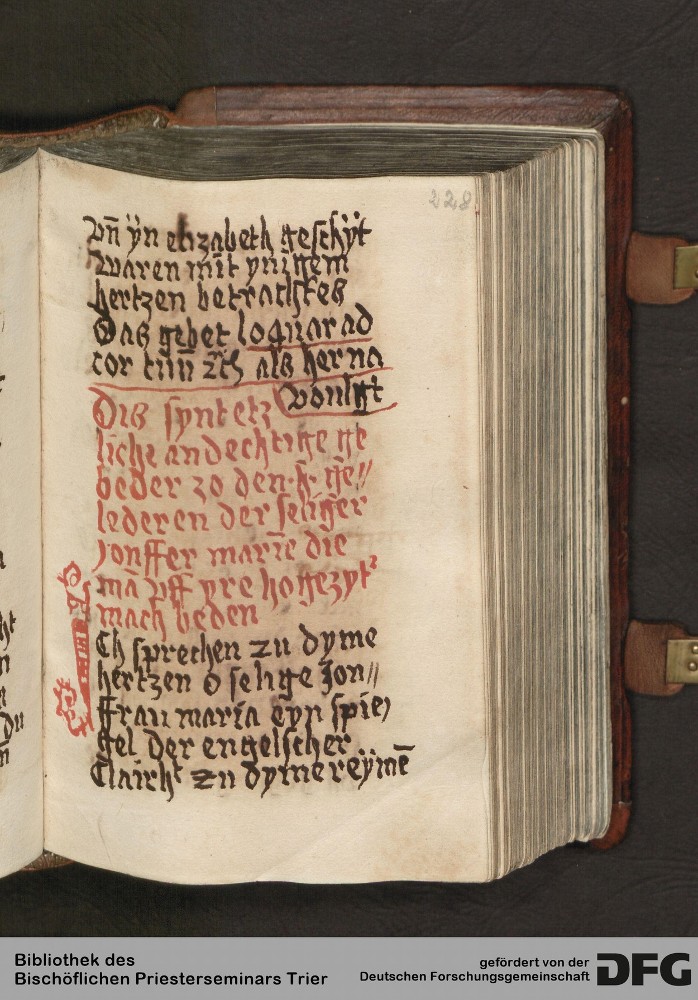 228
vn̄ ÿn elizabeth geschÿt
waren mit ynigem
hertzen betrachtes
Das gebet loquar ad
cor tuū ꝛc̄ als her na
vonlgt
Dis synt etz
liche andechtige ge
beder zo den .h. ge〃
lederen der seliger
Jonffer marīe die
mā vff yre hogezyt
mach beden
Ich sprechen zu dyme
hertzen o selige Jon〃
ffrau maria eyn spie
gel der engelscher
Clairht zu dyme reÿmē
Bibliothek des
Bischöflichen Priesterseminars Trier
gefördert von der
Deutschen Forschungsgemeinschaft
DFG